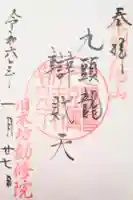 奉拝
九頭龍
辯財天
旧本坊勧修院
令和六年
一月廿七日